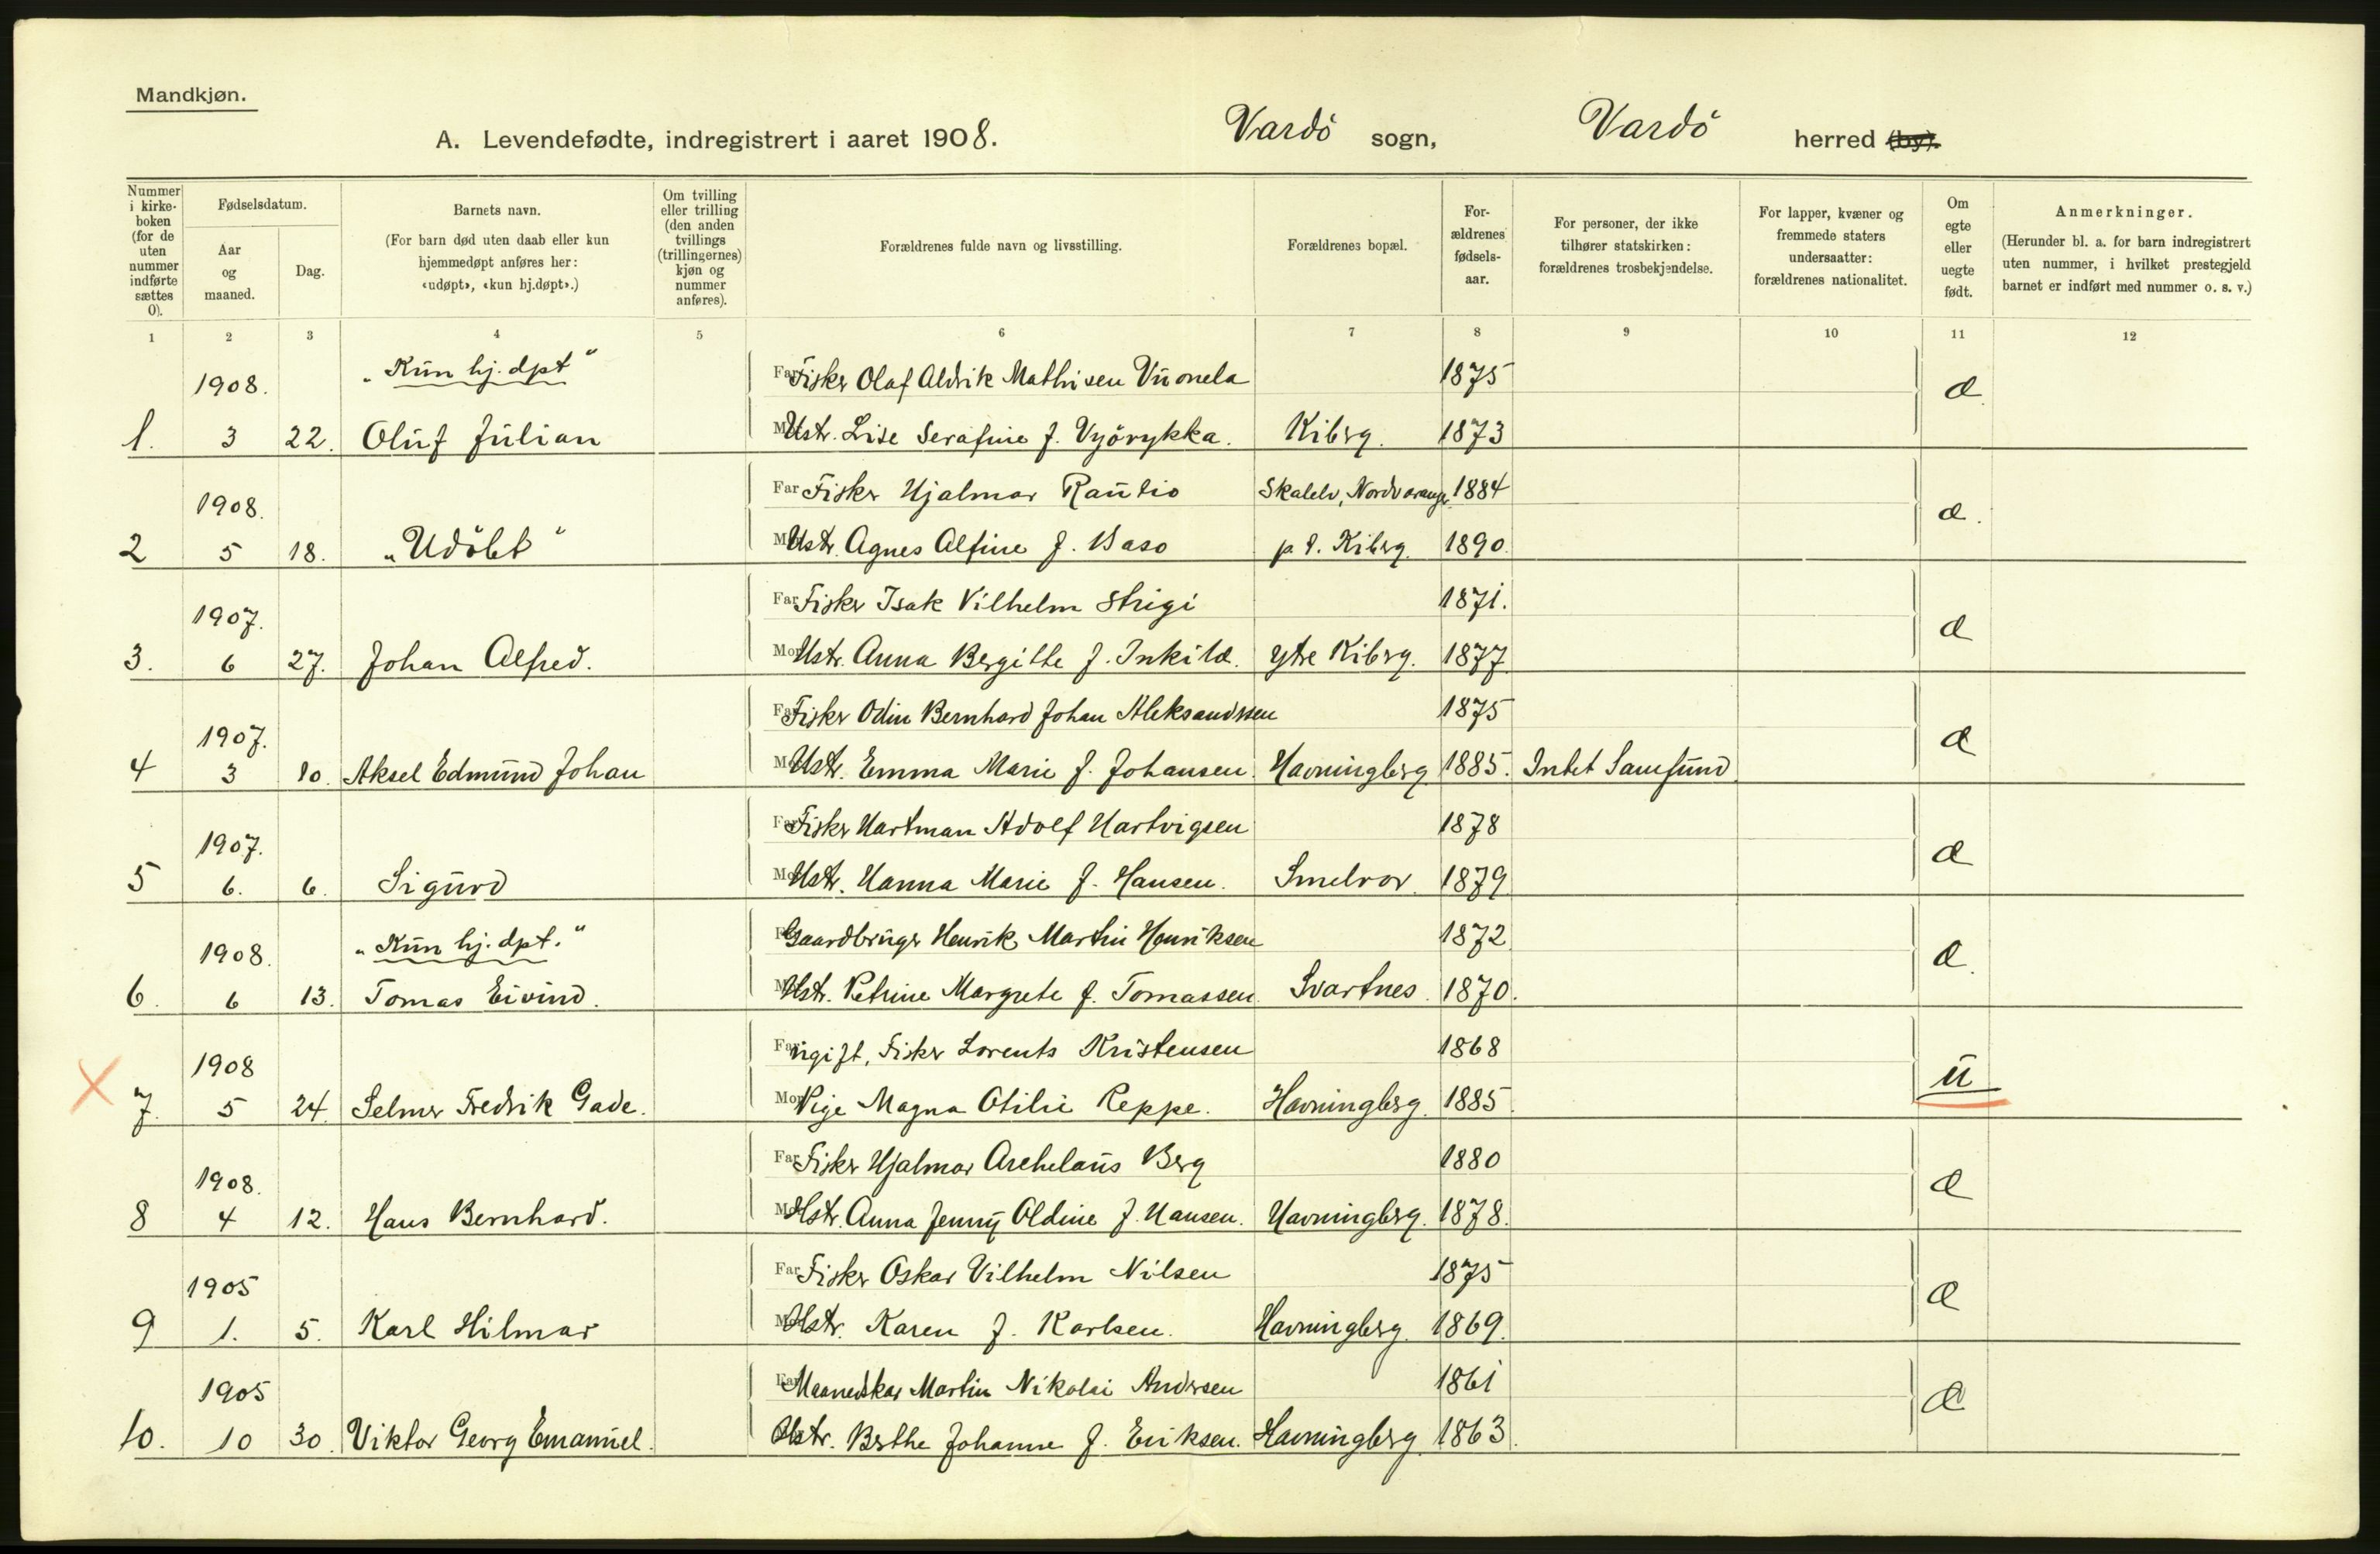 Mandkjøn.
A. Levendefødte, indregistrert i aaret 1908. Vardö sogn, Vardö herred (by).
Nummer i kirke-boken (for de uten nummer indførte sættes 0).
Fødselsdatum.
Aar og maaned.
Dag.
Barnets navn.
(For barn død uten daab eller kun hjemmedøpt anføres her: «udøpt», «kun hj.døpt».)
Om tvilling eller trilling (den anden tvillings (trillingernes) kjøn og nummer anføres).
Forældrenes fulde navn og livsstilling.
Forældrenes bopæl.
For-ældrenes fødsels-aar.
For personer, der ikke tilhører statskirken: forældrenes trosbekjendelse.
For lapper, kvæner og fremmede staters undersaatter: forældrenes nationalitet.
Om egte eller uegte født.
Anmerkninger.
(Herunder bl. a. for barn indregistrert uten nummer, i hvilket prestegjeld barnet er indført med nummer o. s. v.)
1 2 3 4 5 6 7 8 9 10 11 12
1908. „Kun hj. dpt“ Far Fisker Olaf Aldrik Mathisen Vuonela 1875 æ.
1. 3 22. Oluf Julian Mor Hstr. Lise Serafine f. Vyörykka. Kiberg. 1873
1908. Far Fisker Hjalmar Rautio Skalelv, Nordvaranger 1884 æ.
2 5 18. „Udöbt“ Mor Hstr. Agnes Alfine f. Baso p. t. Kiberg. 1890.
1907. Far Fisker Isak Vilhelm Strigi 1871. æ
3. 6 27. Johan Alfred. Mor Hstr. Anna Bergitte f. Inkilæ. Ytre Kiberg. 1877.
1907. Far Fisker Odin Bernhard Johan Aleksandersen 1875 æ
4 3 10. Aksel Edmund Johan Mor Hstr. Emma Marie f. Johansen. Havningberg 1885. Intet Samfund
1907. Far Fisker Hartman Adolf Hartvigsen 1878 æ
5 6. 6. Sigurd Mor Hstr. Hanna Marie f. Hansen. Smelror. 1879.
1908. „Kun hj. dpt.“ Gaardbruger Henrik Martin Henriksen 1872. æ.
6. 6 13. Tomas Eivind. Hstr. Petrine Margrete f. Tomassen. Svartnes. 1870.
1908 Far ugift, Fisker Lorents Kristensen 1868 u
7. 5 24. Selmer Fredrik Gade. Mor Pige Magna Otilie Reppe. Havningberg. 1885.
1908. Far Fisker Hjalmar Archelaus Berg 1880 æ
8 4 12. Hans Bernhard. Mor Hstr. Anna Jenny Oldine f. Hansen. Havningberg. 1878.
1905 Far Fisker Oskar Vilhelm Nilsen 1875 æ
9 1. 5. Karl Hilmar Mor Hstr. Karen f. Karlsen. Havningberg. 1869.
1905 Far Maanedskar Martin Nikolai Andersen 1861 æ
10. 10 30. Viktor Georg Emanuel. Hstr. Berthe Johanne f. Eriksen. Havningberg 1863.